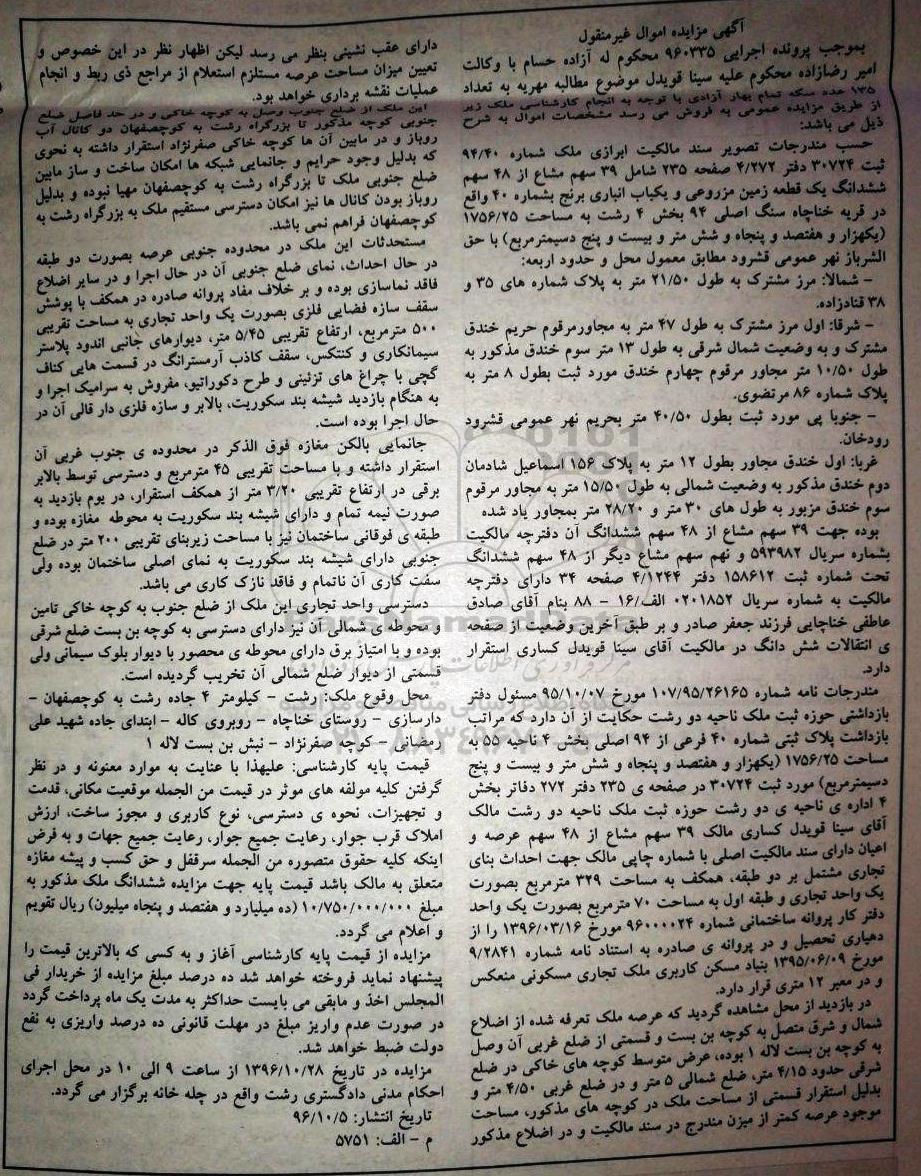 آگهی مزایده اموال غیرمنقول
بموجب پرونده اجرایی ۹۶۰۳۳۵ محکوم له آزاده حسام با وکالت
امیر رضازاده محکوم علیه سینا قویدل موضوع مطالبه مهریه به تعداد
۱۳۵ عدد سکه تمام بهار آزادی با توجه به انجام کارشناسی ملک زیر
از طریق مزایده عمومی به فروش می رسد مشخصات اموال به شرح
ذیل می باشد:
حسب مندرجات تصویر سند مالکیت ابرازی ملک شماره ۹۴/۴۰
ثبت ۳۰۷۲۴ دفتر ۴/۲۷۲ صفحه ۲۳۵ شامل ۳۹ سهم مشاع از ۴۸ سهم
ششدانگ یک قطعه زمین مزروعی و یکباب انباری برنج بشماره ۴۰ واقع
در قریه خناچاه سنگ اصلی ۹۴ بخش ۴ رشت به مساحت ۱۷۵۶/۲۵
(یکهزار و هفتصد و پنجاه و شش متر و بیست و پنج دسیمترمربع) با حق
الشرباز نهر عمومی قشرود مطابق معمول محل و حدود اربعه:
– شمالا: مرز مشترک به طول ۲۱/۵۰ متر به پلاک شماره های ۳۵ و
۳۸ قنادزاده.
– شرقا: اول مرز مشترک به طول ۴۷ متر به مجاورمرقوم حریم خندق
مشترک و به وضعیت شمال شرقی به طول ۱۳ متر سوم خندق مذکور به
طول ۱۰/۵۰ متر مجاور مرقوم چهارم خندق مورد ثبت بطول ۸ متر به
پلاک شماره ۸۶ مرتضوی.
– جنوبا پی مورد ثبت بطول ۴۰/۵۰ متر بحریم نهر عمومی قشرود
رودخان.
غربا: اول خندق مجاور بطول ۱۲ متر به پلاک ۱۵۶ اسماعیل شادمان
دوم خندق مذکور به وضعیت شمالی به طول ۱۵/۵۰ متر به مجاور مرقوم
سوم خندق مزبور به طول های ۳۰ متر و ۲۸/۲۰ متر بمجاور یاد شده
بوده جهت ۳۹ سهم مشاع از ۴۸ سهم ششدانگ آن دفترچه مالکیت
بشماره سریال ۵۹۳۹۸۲ و نهم سهم مشاع دیگر از ۴۸ سهم ششدانگ
تحت شماره ثبت ۱۵۸۶۱۲ دفتر ۴/۱۲۴۴ صفحه ۳۴ دارای دفترچه
مالکیت به شماره سریال ۰۲۰۱۸۵۲ الف/۱۶ – ۸۸ بنام آقای صادق
عاطفی خناچایی فرزند جعفر صادر و بر طبق آخرین وضعیت از صفحه
ی انتقالات شش دانگ در مالکیت آقای سینا قویدل کساری استقرار
دارد.
مندرجات نامه شماره ۱۰۷/۹۵/۲۶۱۶۵ مورخ ۹۵/۱۰/۰۷ مسئول دفتر
بازداشتی حوزه ثبت ملک ناحیه دو رشت حکایت از آن دارد که مراتب
بازداشت پلاک ثبتی شماره ۴۰ فرعی از ۹۴ اصلی بخش ۴ ناحیه ۵۵ به
مساحت ۱۷۵۶/۲۵ (یکهزار و هفتصد و پنجاه و شش متر و بیست و پنج
دسیمترمربع) مورد ثبت ۳۰۷۲۴ در صفحه ی ۲۳۵ دفتر ۲۷۲ دفاتر بخش
۴ اداره ی ناحیه ی دو رشت حوزه ثبت ملک ناحیه دو رشت مالک
آقای سینا قویدل کساری مالک ۳۹ سهم مشاع از ۴۸ سهم عرصه و
اعیان دارای سند مالکیت اصلی با شماره چاپی مالک جهت احداث بنای
تجاری مشتمل بر دو طبقه، همکف به مساحت ۳۲۹ مترمربع بصورت
یک واحد تجاری و طبقه اول به مساحت ۷۰ مترمربع بصورت یک واحد
دفتر کار پروانه ساختمانی شماره ۹۶۰۰۰۰۲۴ مورخ ۱۳۹۶/۰۳/۱۶ را از
دهیاری تحصیل و در پروانه ی صادره به استناد نامه شماره ۹/۲۸۴۱
مورخ ۱۳۹۵/۰۶/۰۹ بنیاد مسکن کاربری ملک تجاری مسکونی منعکس
و در معبر ۱۲ متری قرار دارد.
در بازدید از محل مشاهده گردید که عرصه ملک تعرفه شده از اضلاع
شمال و شرق متصل به کوچه بن بست و قسمتی از ضلع غربی آن وصل
به کوچه بن بست لاله ۱ بوده، عرض متوسط کوچه های خاکی در ضلع
شرقی حدود ۴/۱۵ متر، ضلع شمالی ۵ متر و در ضلع غربی ۴/۵۰ متر و
بدلیل استقرار قسمتی از مساحت ملک در کوچه های مذکور، مساحت
موجود عرصه کمتر از میزن مندرج در سند مالکیت و در اضلاع مذکور
دارای عقب نشینی بنظر می رسد لیکن اظهار نظر در این خصوص و
تعیین میزان مساحت عرصه مستلزم استعلام از مراجع ذی ربط و انجام
عملیات نقشه برداری خواهد بود.
این ملک از ضلع جنوب وصل به کوچه خاکی و در حد فاصل ضلع
جنوبی کوچه مذکور تا بزرگراه رشت به کوچصفهان دو کانال آب
روباز و در مابین آن ها کوچه خاکی صفرنژاد استقرار داشته به نحوی
که بدلیل وجود حرایم و جانمایی شبکه ها امکان ساخت و ساز مابین
ضلع جنوبی ملک تا بزرگراه رشت به کوچصفهان مهیا نبوده و بدلیل
روباز بودن کانال ها نیز امکان دسترسی مستقیم ملک به بزرگراه رشت به
کوچصفهان فراهم نمی باشد.
مستحدثات این ملک در محدوده جنوبی عرصه بصورت دو طبقه
در حال احداث، نمای ضلع جنوبی آن در حال اجرا و در سایر اضلاع
فاقد نماسازی بوده و بر خلاف مفاد پروانه صادره در همکف با پوشش
سقف سازه فضایی فلزی بصورت یک واحد تجاری به مساحت تقریبی
۵۰۰ مترمربع، ارتفاع تقریبی ۵/۴۵ متر، دیوارهای جانبی اندود پلاستر
سیمانکاری و کنتکس، سقف کاذب آرمسترانگ در قسمت هایی کناف
گچی با چراغ های تزئینی و طرح دکوراتیو، مفروش به سرامیک اجرا و
به هنگام بازدید شیشه بند سکوریت، بالابر و سازه فلزی دار قالی آن در
حال اجرا بوده است.
جانمایی بالکن مغازه فوق الذکر در محدوده ی جنوب غربی آن
استقرار داشته و با مساحت تقریبی ۴۵ مترمربع و دسترسی توسط بالابر
برقی در ارتفاع تقریبی ۳/۲۰ متر از همکف استقرار، در یوم بازدید به
صورت نیمه تمام و دارای شیشه بند سکوریت به محوطه مغازه بوده و
طبقه ی فوقانی ساختمان نیز با مساحت زیربنای تقریبی ۲۰۰ متر در ضلع
جنوبی دارای شیشه بند سکوریت به نمای اصلی ساختمان بوده ولی
سفت کاری آن ناتمام و فاقد نازک کاری می باشد.
دسترسی واحد تجاری این ملک از ضلع جنوب به کوچه خاکی تامین
و محوطه ی شمالی آن نیز دارای دسترسی به کوچه بن بست ضلع شرقی
بوده و با امتیاز برق دارای محوطه ی محصور با دیوار بلوک سیمانی ولی
قسمتی از دیوار ضلع شمالی آن تخریب گردیده است.
محل وقوع ملک: رشت – کیلومتر ۴ جاده رشت به کوچصفهان –
دارسازی – روستای خناچاه – روبروی کاله – ابتدای جاده شهید علی
رمضانی – کوچه صفرنژاد – نبش بن بست لاله ۱
قیمت پایه کارشناسی: علیهذا با عنایت به موارد معنونه و در نظر
گرفتن کلیه مولفه های موثر در قیمت من الجمله موقعیت مکانی، قدمت
و تجهیزات، نحوه ی دسترسی، نوع کاربری و مجوز ساخت، ارزش
املاک قرب جوار، رعایت جمیع جوار، رعایت جمیع جهات و به فرض
اینکه کلیه حقوق متصوره من الجمله سرقفل و حق کسب و پیشه مغازه
متعلق به مالک باشد قیمت پایه جهت مزایده ششدانگ ملک مذکور به
مبلغ ۱۰/۷۵۰/۰۰۰/۰۰۰ (ده میلیارد و هفتصد و پنجاه میلیون) ریال تقویم
و اعلام می گردد.
مزایده از قیمت پایه کارشناسی آغاز و به کسی که بالاترین قیمت را
پیشنهاد نماید فروخته خواهد شد ده درصد مبلغ مزایده از خریدار فی
المجلس اخذ و مابقی می بایست حداکثر به مدت یک ماه پرداخت گردد
در صورت عدم واریز مبلغ در مهلت قانونی ده درصد واریزی به نفع
دولت ضبط خواهد شد.
مزایده در تاریخ ۱۳۹۶/۱۰/۲۸ از ساعت ۹ الی ۱۰ در محل اجرای
احکام مدنی دادگستری رشت واقع در چله خانه برگزار می گردد.
تاریخ انتشار: ۹۶/۱۰/۵
م – الف: ۵۷۵۱